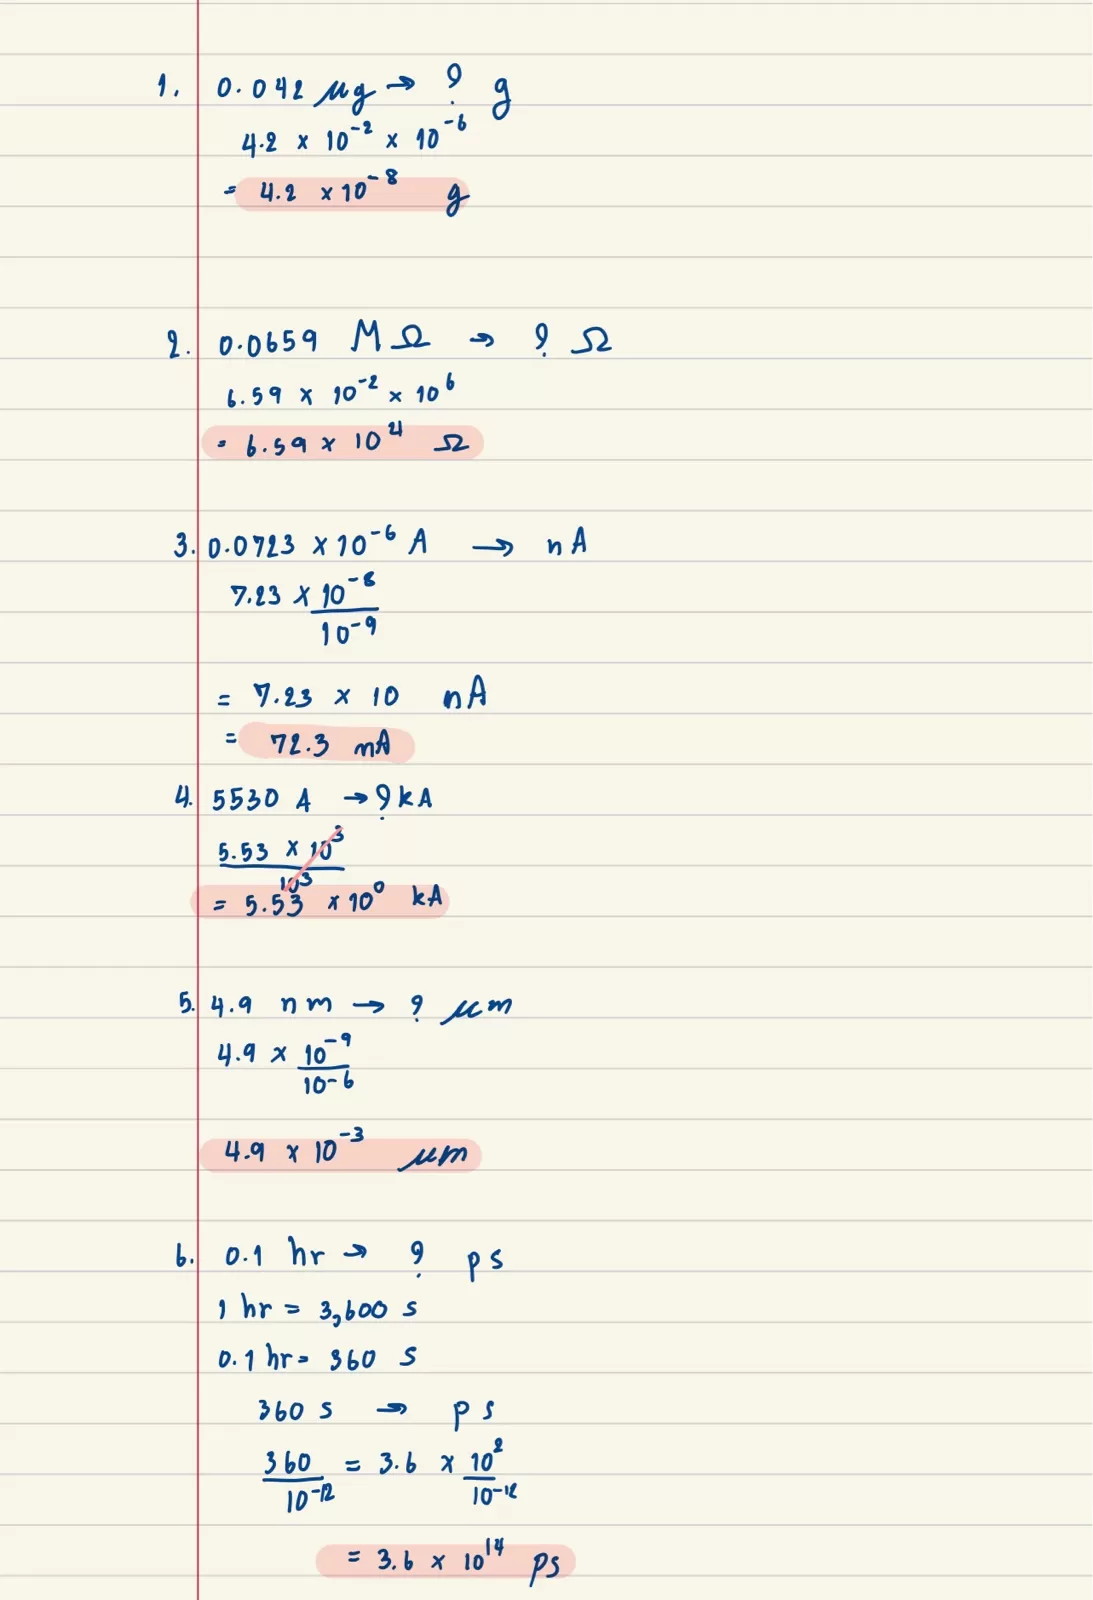 1. 0.042 µg → ? g
4.2 × 10⁻² × 10⁻⁶
= 4.2 × 10⁻⁸ g
2. 0.0659 MΩ → ? Ω
6.59 × 10⁻² × 10⁶
= 6.59 × 10⁴ Ω
3. 0.0723 × 10⁻⁶ A → nA
7.23 × 10⁻⁸
10⁻⁹
= 7.23 × 10 nA
= 72.3 nA
4. 5530 A → ? kA
5.53 × 10³
10³
= 5.53 × 10⁰ kA
5. 4.9 nm → ? µm
4.9 × 10⁻⁹
10⁻⁶
4.9 × 10⁻³ µm
6. 0.1 hr → ? ps
1 hr = 3,600 s
0.1 hr = 360 s
360 s → ps
360 = 3.6 × 10²
10⁻¹² 10⁻¹²
= 3.6 × 10¹⁴ ps